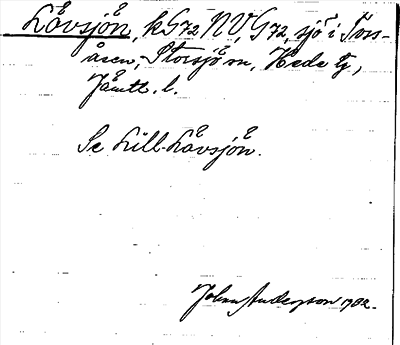 Lövsjön, kG72NV, G72, sjö i Tors-
åsen, Storsjö sn, Hede tg,
Jämtl. l.
Se Lill-Lövsjön.
Johan Anderzson 1902.